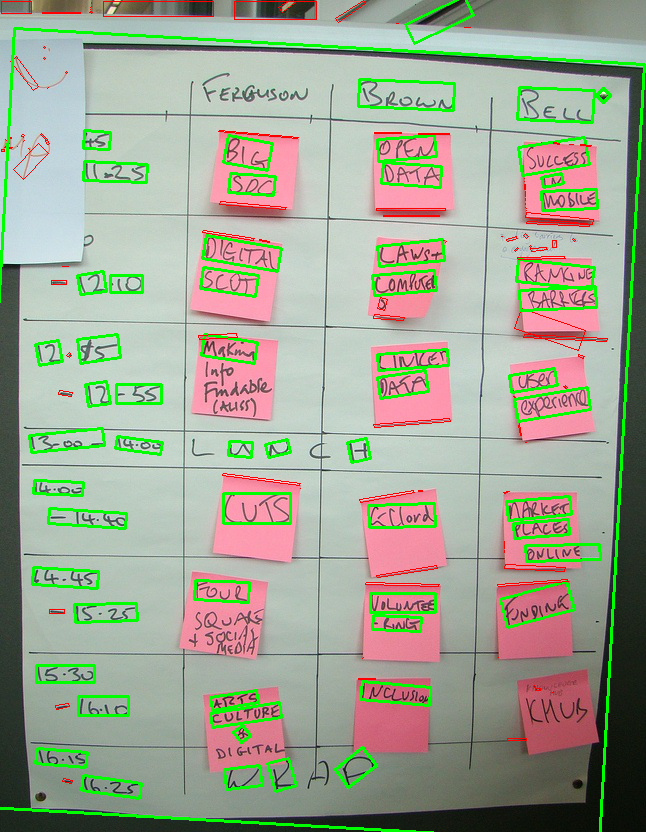 FERGUSON BROWN BELL
45
11.25
BIG
SDC
OPEN
DATA
SUCCESS
IN
MOBILE
- 12.10
DIGITAL
SCOT
LAWS+
COMPUTER
RANKING
BARRIERS
12.
- 12-55
Making
Info
Findable
(ALISS)
LINKED
DATA
user
experience
13-00 - 14.00 LUNCH
14.00
- 14.40
CUTS
MARKET
PLACES
ONLINE
14.45
- 15-25
FOUR
SQUARE
+ SOCIAL
MEDIA
VOLUNTEE
-RING
FUNDING
15.30
- 16.10
ARTS
CULTURE
&
DIGITAL
INCLUSION
KHUB
16.15
- 16.25
WRAP